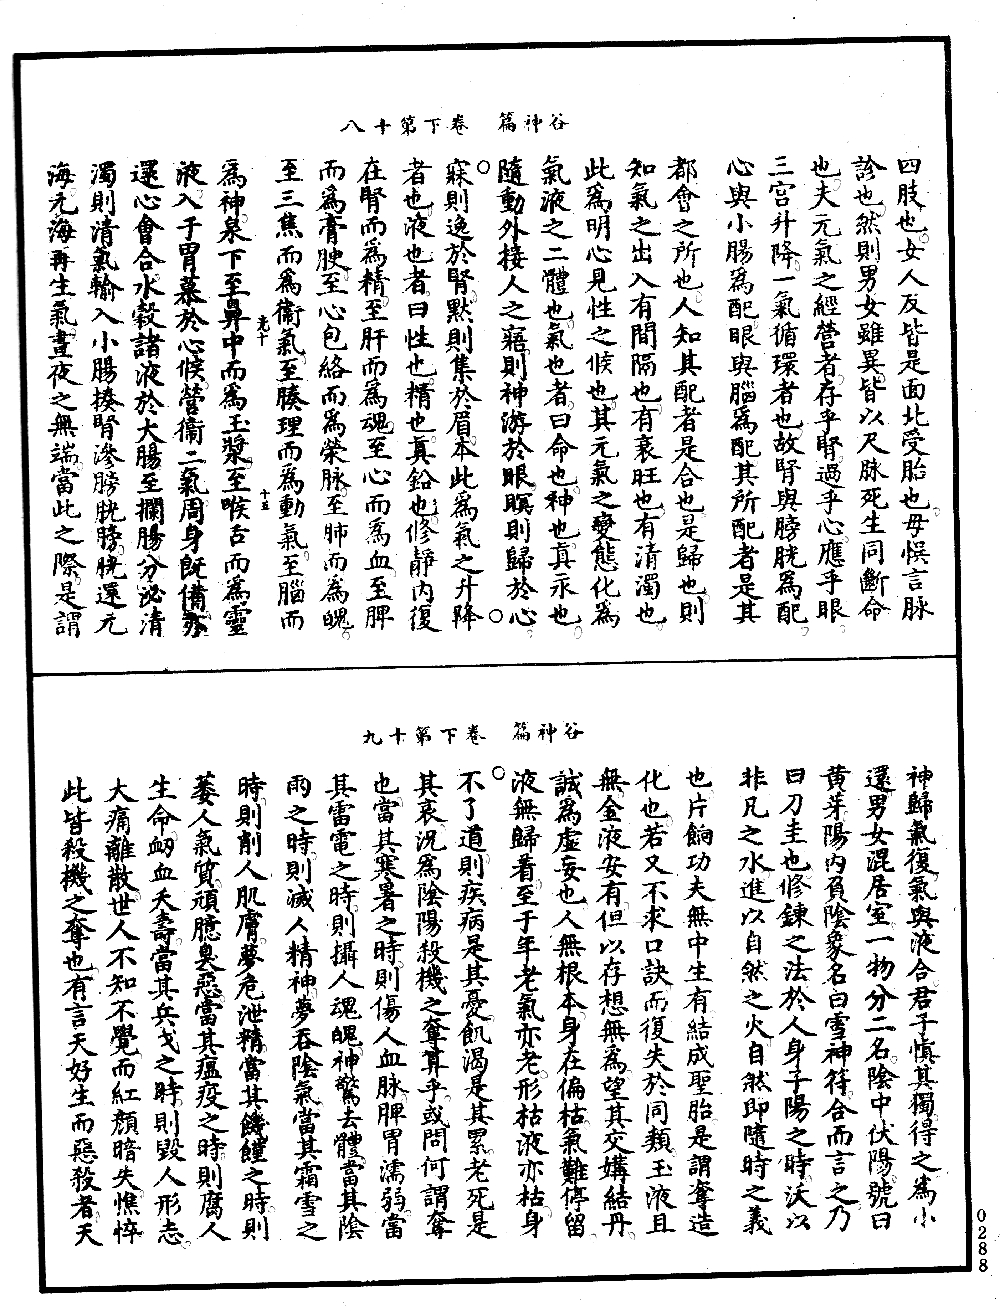 谷神篇　卷下第十八
四肢也女人反皆是面北受胎也毋悞言脉
診也然則男女雖異皆以尺脉死生同斷命
也夫元氣之經營者存乎腎過乎心應乎眼
三宫升降一氣循環者也故腎與膀胱爲配
心與小腸爲配眼與腦爲配其所配者是其
都會之所也人知其配者是合也是歸也則
知氣之出入有間隔也有衰旺也有清濁也
此爲明心見性之候也其元氣之變態化爲
氣液之二體也氣也者曰命也神也真汞也
隨動外接人之寤則神游於眼瞑則歸於心
寐則逸於腎默則集於眉本此爲氣之升降
者也液也者曰性也精也真鉛也修靜内復
在腎而爲精至肝而爲魂至心而爲血至脾
而爲膏腴至心包絡而爲榮脉至肺而爲魄
至三焦而爲衞氣至腠理而爲動氣至腦而
光十　十五
爲神泉下至鼻中而爲玉漿至喉舌而爲靈
液入于胃募於心候營衞二氣周身既備亦
還心會合水穀諸液於大腸至攔腸分泌清
濁則清氣輸入小腸揍腎滲膀胱膀胱還元
海元海再生氣晝夜之無端當此之際是謂
谷神篇　卷下第十九
神歸氣復氣與液合君子慎其獨得之爲小
還男女混居室一物分二名陰中伏陽號曰
黄芽陽内負陰象名白雪神符合而言之乃
曰刀圭也修鍊之法於人身子陽之時沃以
非凡之水進以自然之火自然即隨時之義
也片餉功夫無中生有結成聖胎是謂奪造
化也若又不求口訣而復失於同類玉液且
無金液安有但以存想無爲望其交媾結丹
誠爲虛妄也人無根本身在偏枯氣難停留
液無歸着至于年老氣亦老形枯液亦枯身
不了道則疾病是其憂飢渴是其累老死是
其哀況爲陰陽殺機之奪算乎或問何謂奪
也當其寒暑之時則傷人血脉脾胃濡弱當
其雷電之時則攝人魂魄神驚去體當其陰
雨之時則滅人精神夢吞陰氣當其霜雪之
時則削人肌膚夢危泄精當其饑饉之時則
萎人氣質頑臆臭惡當其瘟疫之時則腐人
生命衂血夭壽當其兵戈之時則毀人形志
大痛離散世人不知不覺而紅顔暗失憔悴
此皆殺機之奪也有言天好生而惡殺者天
0288